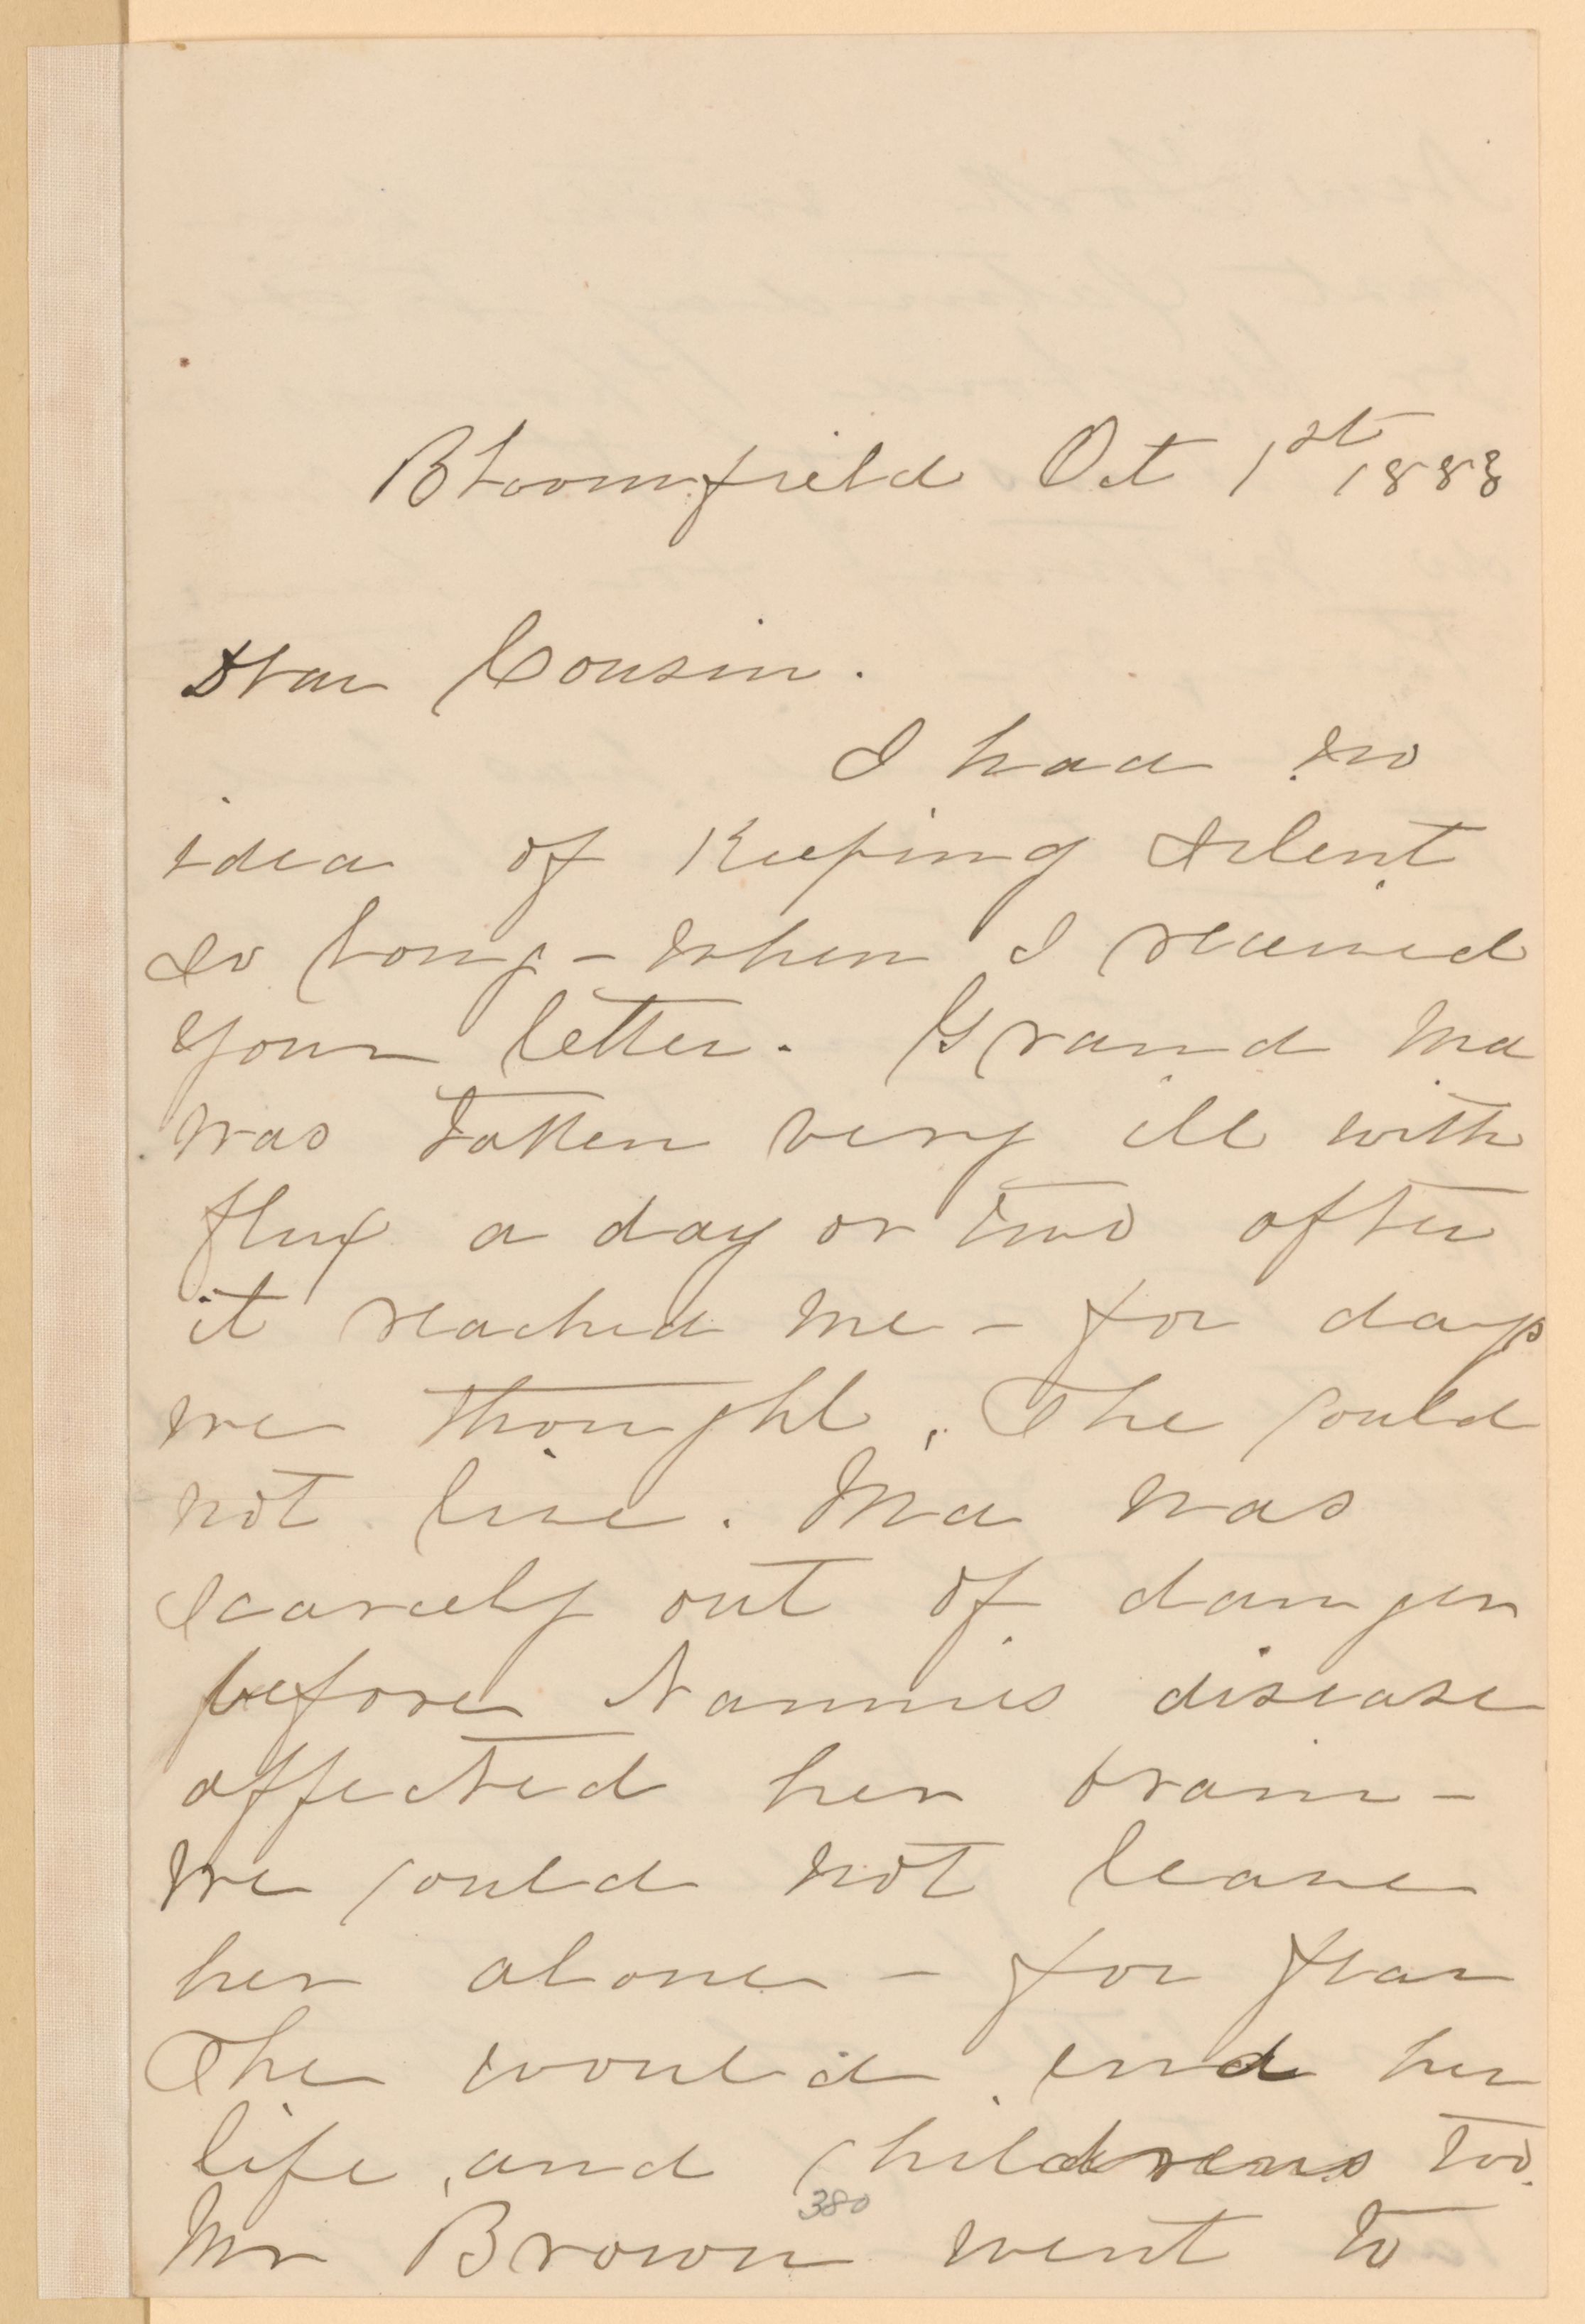 Bloomfield Oct 1st 1888
Dear Cousin.
I had no
idea of Keeping silent
so long - when I received
your letter. Grand Ma
was taken very ill with
flux a day or two after
it reached me - for days
we thought, She could
not live. Ma was
scarcely out of danger
before Nannies disease
affected her brain -
We could not leave
her alone - for fear
She would end her
life, and childrens too.
380
Mr Brown went to